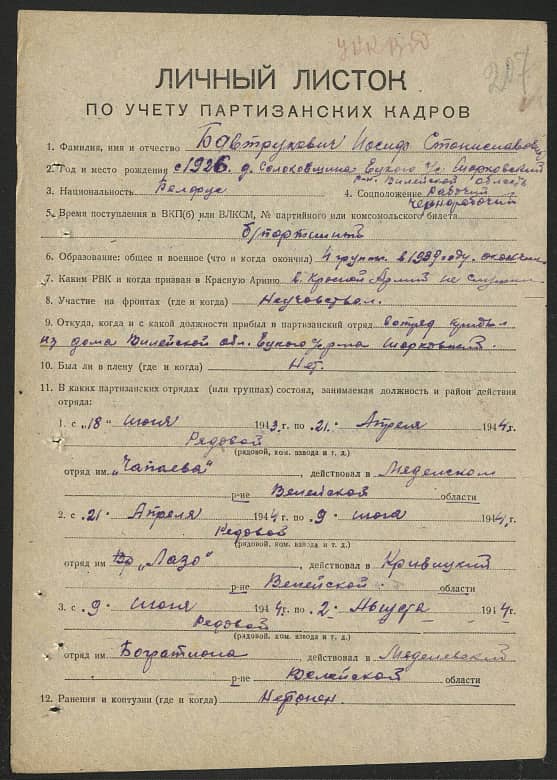 207
ЛИЧНЫЙ ЛИСТОК
ПО УЧЕТУ ПАРТИЗАНСКИХ КАДРОВ
1. Фамилия, имя и отчество Бавтрукевич Иосиф Станиславович
2. Год и место рождения с 1926 д.
3. Национальность Белорус
р-н. Вилейской область
4. Соцположение рабочий
чернорабочий
5. Время поступления в ВКП(б) или ВЛКСМ, № партийного или комсомольского билета
б/партшить
6. Образование: общее и военное (что и когда окончил) 4 групп. в 1939 году.
7. Каким РВК и когда призван в Красную Армию в. Красной Армий не
8. Участие на фронтах (где и когда) Неучовствал.
9. Откуда, когда и с какой должности прибыл в партизанский отряд вотряд
из дома Вилейской обл.
10. Был ли в плену (где и когда) Нет.
11. В каких партизанских отрядах (или группах) состоял, занимаемая должность и район действия
отряда:
1. с „18" июня 1943 г. по .21. Апреля 1944 г.
Рядовой
(рядовой, ком. взвода и т. д.)
отряд им. „Чапаева" действовал в Меделском
р-не Велейской области
2. с .21. Апреля 1944 г. по 9 июня 1944 г.
Редовой
(рядовой, ком. взвода и т. д.)
отряд им „Лазо" действовал в Кривицкий
р-не Велейской области
3. с 9 июня 1944 г. по 2. Августа 1944 г.
Редовой
(рядовой, ком. взвода и т. д.)
отряд им Богратиона действовал в
р-не Велейской области
12. Ранения и контузии (где и когда) Неронен.